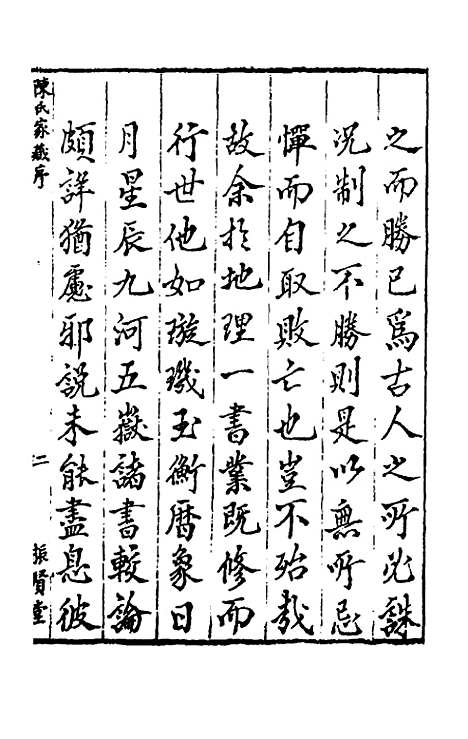 之而勝已爲古人之所必誅
況制之不勝則是以無所忌
憚而自取敗亡也豈不殆哉
故余於地理一書業既修而
行世他如璇璣玉衡曆象日
月星辰九河五嶽諸書較論
頗詳猶慮邪説未能盡息彼
陳氏家藏序
二
振賢堂